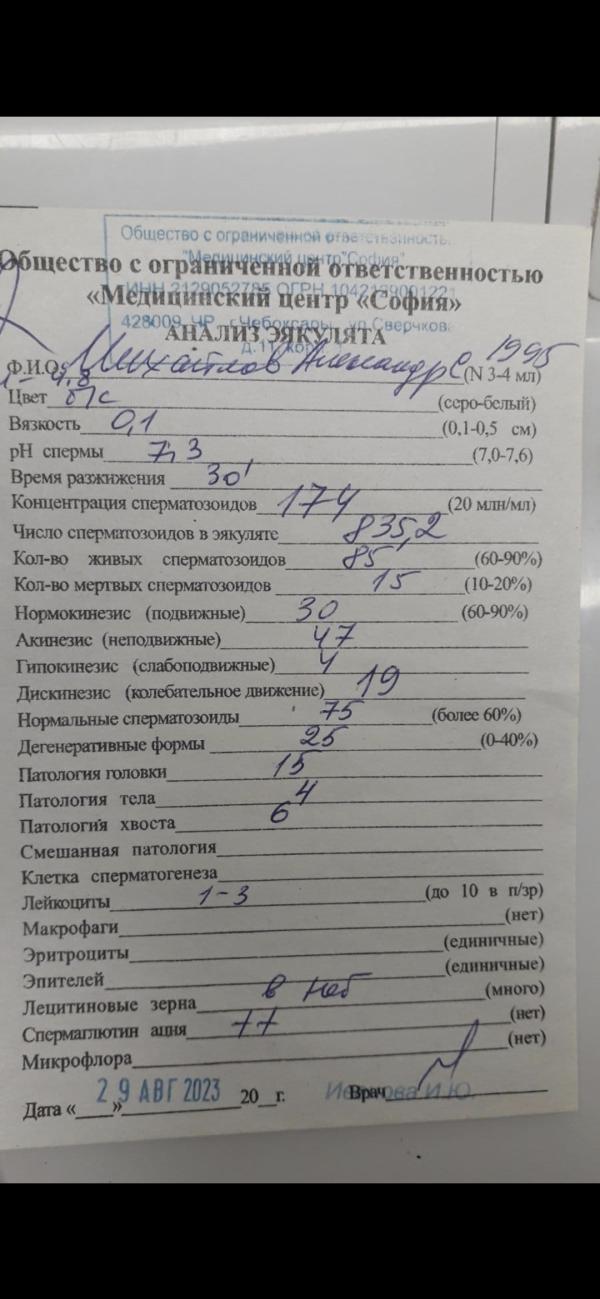 Общество с ограниченной ответственностью
"Медицинский центр "София"
ИНН 2129052785 ОГРН
428009, ЧР, г.Чебоксары, ул.Сверчкова
Общество с ограниченной ответственностью
«Медицинский центр «София»
АНАЛИЗ ЭЯКУЛЯТА
Ф.И.О. Михайлов Александр С 1995
4,8 (N 3-4 мл)
Цвет б/с (серо-белый)
Вязкость 0,1 (0,1-0,5 см)
pH спермы 7,3 (7,0-7,6)
Время разжижения 30'
Концентрация сперматозоидов 174 (20 млн/мл)
Число сперматозоидов в эякуляте 835,2
Кол-во живых сперматозоидов 85 (60-90%)
Кол-во мертвых сперматозоидов 15 (10-20%)
Нормокинезис (подвижные) 30 (60-90%)
Акинезис (неподвижные) 47
Гипокинезис (слабоподвижные) 4
Дискинезис (колебательное движение) 19
Нормальные сперматозоиды 75 (более 60%)
Дегенеративные формы 25 (0-40%)
Патология головки 15
Патология тела 4
Патология хвоста 6
Смешанная патология
Клетка сперматогенеза
Лейкоциты 1-3 (до 10 в п/зр)
Макрофаги (нет)
Эритроциты (единичные)
Эпителей (единичные)
Лецитиновые зерна в неб (много)
Спермаглютин ация ++ (нет)
Микрофлора (нет)
Дата «29 АВГ 2023» 20 г. Врач И.Ю.